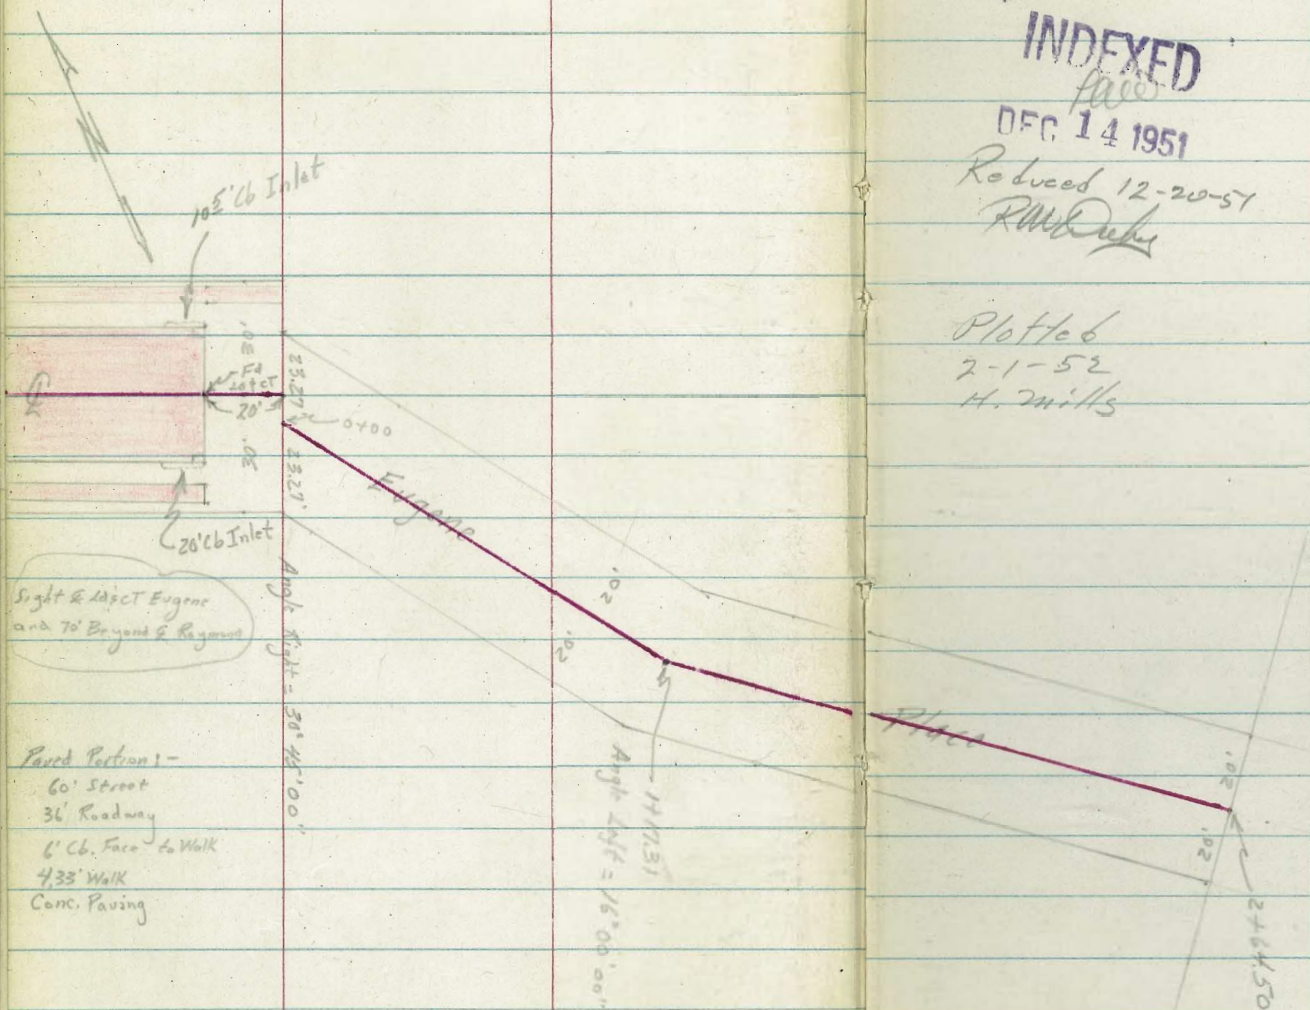 INDEXED
DEC 14 1951
Reduced 12-20-51
Plotted
2-1-52
H. Mills
N
10⁵' Cb Inlet
30'
23.27'
Fd
Ld & CT
20'
0+00
30'
23.27'
20' Cb Inlet
Eugene
Place
Sight ₵ Ld & CT Eugene
and 70' Beyond ₵ Raymond
Angle Right = 30° 45' 00"
20'
20'
1+17.31
Angle Left = 16° 00' 00"
20'
20'
2+64.50
Paved Portion:-
60' Street
36' Roadway
6' Cb. Face to Walk
4.33' Walk
Conc. Paving